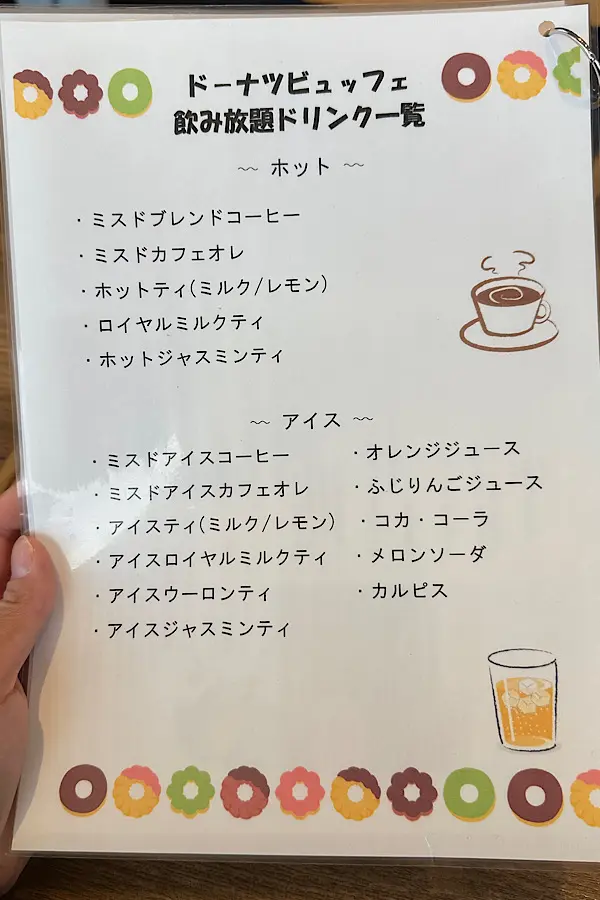 ドーナツビュッフェ
飲み放題ドリンク一覧
~~ ホット ~~
・ミスドブレンドコーヒー
・ミスドカフェオレ
・ホットティ(ミルク/レモン)
・ロイヤルミルクティ
・ホットジャスミンティ
~~ アイス ~~
・ミスドアイスコーヒー
・ミスドアイスカフェオレ
・アイスティ(ミルク/レモン)
・アイスロイヤルミルクティ
・アイスウーロンティ
・アイスジャスミンティ
・オレンジジュース
・ふじりんごジュース
・コカ・コーラ
・メロンソーダ
・カルピス